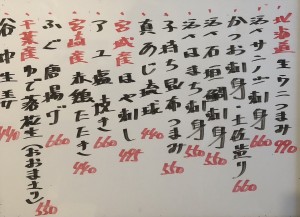 北海道 生ウニつまみ 990
活〆サンマ刺身 550
かつお刺身 土佐造り 660
活〆石垣鯛刺身 550
活〆いさき刺身 550
子持ち昆布つまみ 550
真あじ琉球 440
宮城産 ほや刺し 495
アユ塩焼き 660
宮崎産 赤鶏たたき 440
ふぐ唐揚げ 660
千葉産 ゆで落花生(おおまさり) 550
谷中生姜 440